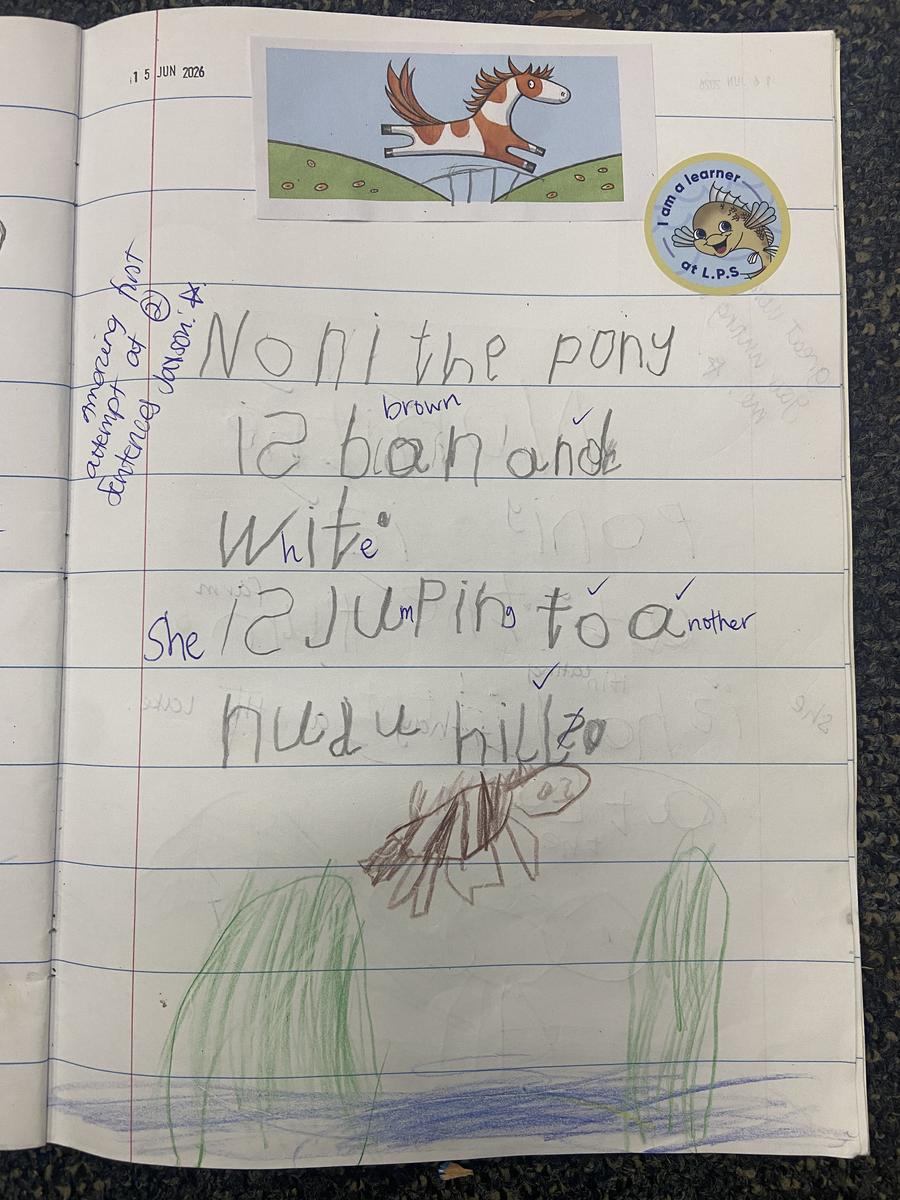 15 JUN 2026
I am a learner
at L.P.S
amazing first
attempt at 2
sentences Jaxson!
Noni the pony
brown
is ban and
white
She is Jumping to another
nudu hill